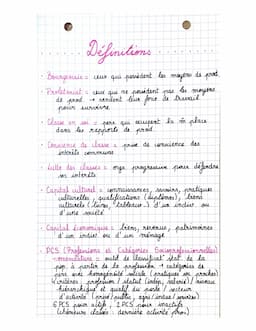 Définitions
• Bourgeoisie = ceux qui possèdent les moyens de prod.
• Prolétariat = ceux qui ne possèdent pas les moyens
de prod → vendent leur force de travail
pour survivre.
• Classe en soi = pers qui occupent la m place
dans les rapports de prod.
• Conscience de classe = prise de conscience des
intérêts communs
• Lutte des classes = orga progressive pour défendre
ses intérêts
• Capital culturel = connaissances, savoirs, pratiques
culturelles, qualifications (diplômes), biens
culturels (livres, tableaux..) d'un indiv ou
d'une société
• Capital économique = biens, revenus, patrimoines
d'un indiv ou d'un ménage
• PCS (Professions et Catégories Socioprofessionnelles)
= nomenclature = outil de classificat° stat de la
pop. à partir de la profession → catégories de
pers avec homogénéité sociale (pratiques en proches)
4 critères : profession / statut (indep, salarié) / niveau
hiérarchique et qualif du poste / secteur
d'activité (privé / public, agri / indus / services)
6 PCS pour actif, 2 PCS pour inactifs
(chômeurs classés : dernière activité pro.)